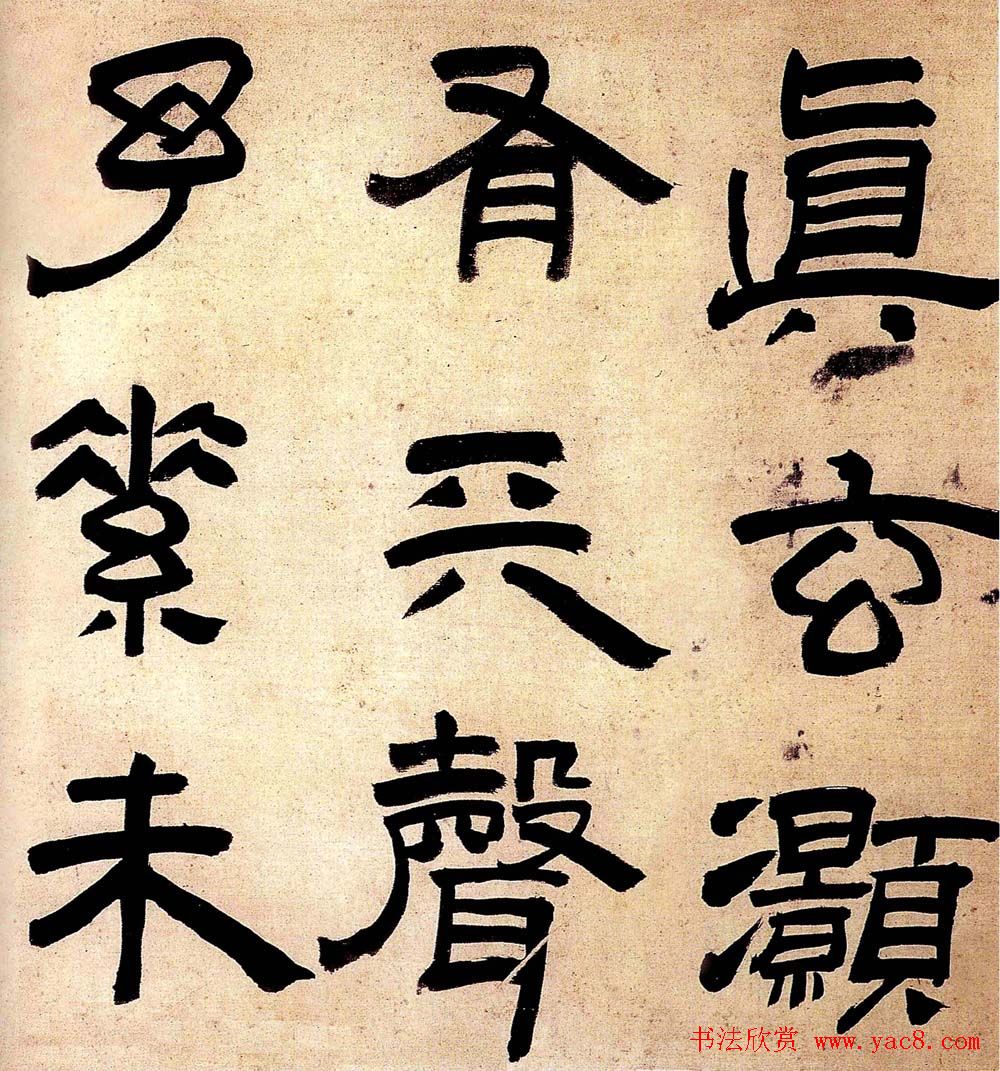 眞玄灝
有聲
素未
书法欣赏 www.yac8.com